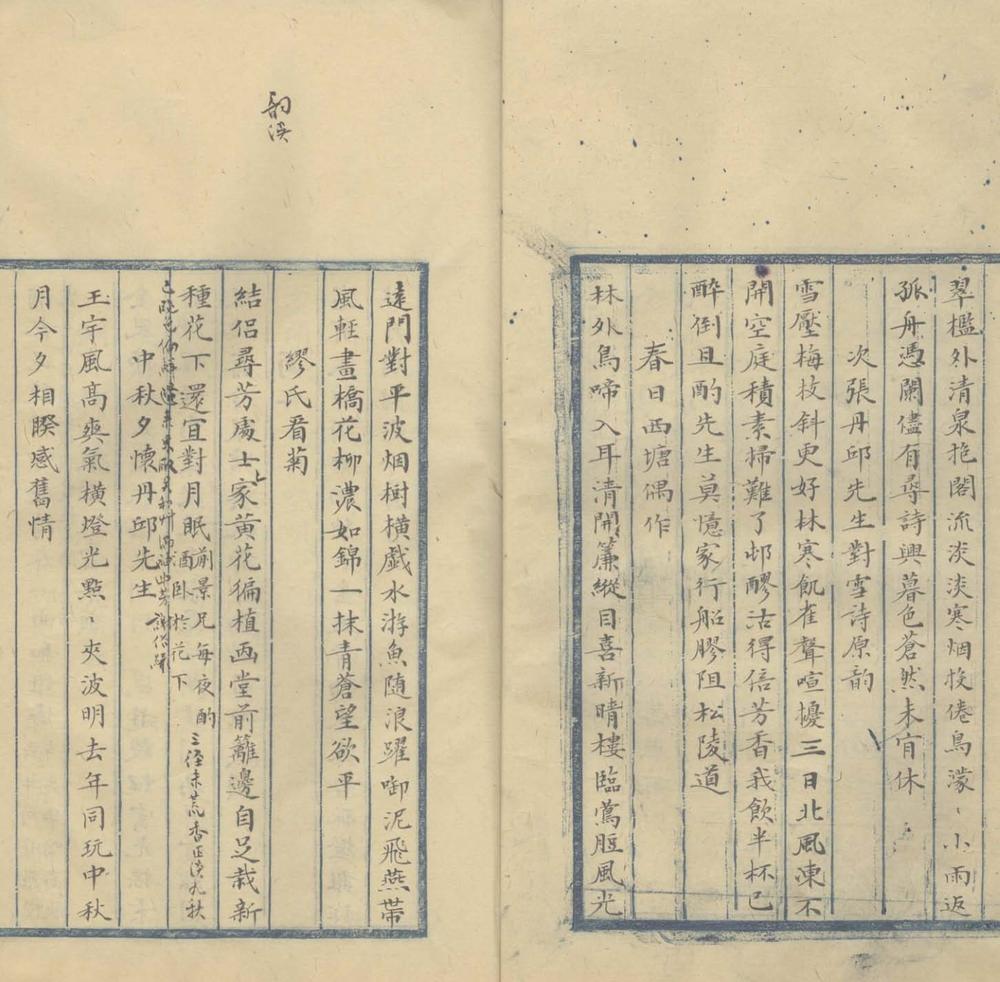 翠檻外清泉抱閣流淡淡寒烟投倦鳥濛丶小雨返
孤舟憑闌儘有尋詩興暮色蒼然未肯休
次張丹邱先生對雪詩原韵
雪壓梅枝斜更好林寒飢雀聲喧擾三日北風凍不
開空庭積素掃難了邨醪沽得倍芳香我飲半杯已
醉倒且酌先生莫憶家行船膠阻松陵道
春日西塘偶作
林外鳥啼入耳清開簾縱目喜新晴樓臨鶯脰風光
韵漢
遠門對平波烟樹橫戲水游魚隨浪躍啣泥飛燕帶
風輕畫橋花柳濃如錦一抹青蒼望欲平
繆氏看菊
結侶尋芳處士家黃花徧植西堂前籬邊自足栽新
上
種花下還宜對月眠
前景兄每夜酌
酒臥於花下
三徑未荒香正溪九秋
中秋夕懷丹邱先生
玉宇風高爽氣橫燈光點丶夾波明去年同玩中秋
月今夕相睽感舊情